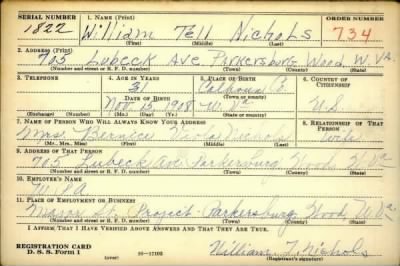 SERIAL NUMBER 1. NAME (Print) ORDER NUMBER
1822 William Tell Nichols 734
(First) (Middle) (Last)
2. ADDRESS (Print)
705 Lubeck Ave Parkersburg Wood W. Va
(Number and street or R. F. D. number) (Town) (County) (State)
3. TELEPHONE 4. AGE IN YEARS 5. PLACE OF BIRTH 6. COUNTRY OF CITIZENSHIP
31 Calhoun Co.
DATE OF BIRTH (Town or county)
Nov 15 1908 W. Va U.S.
(Exchange) (Number) (Mo.) (Day) (Yr.) (State or country)
7. NAME OF PERSON WHO WILL ALWAYS KNOW YOUR ADDRESS 8. RELATIONSHIP OF THAT PERSON
Mrs. Bernice Nichols Wife
(Mr., Mrs., Miss) (First) (Middle) (Last)
9. ADDRESS OF THAT PERSON
705 Lubeck Ave Parkersburg Wood W. Va
(Number and street or R. F. D. number) (Town) (County) (State)
10. EMPLOYER'S NAME
W.P.A
11. PLACE OF EMPLOYMENT OR BUSINESS
Project Parkersburg Wood W.Va.
(Number and street or R. F. D. number) (Town) (County) (State)
I AFFIRM THAT I HAVE VERIFIED ABOVE ANSWERS AND THAT THEY ARE TRUE.
REGISTRATION CARD
D. S. S. Form 1 16—17105 William T. Nichols
(Registrant's signature)